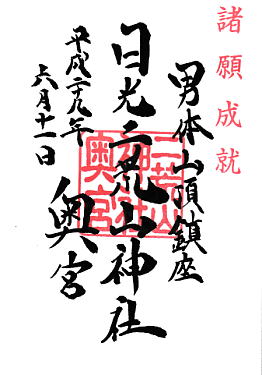 諸願成就
男体山頂鎮座
日光二荒山神社
奥宮
平成二十九年
六月十一日
二荒山
神社
奥宮